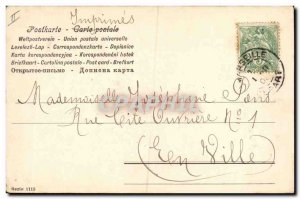 Imprimés
Postkarte - Carte postale
Weltpostverein - Union postale universelle
Levelezö-Lap - Correspondenzkarte - Dopisnice
Karta korespondencyjna - Korespondenční lístek
Briefkaart - Cartolina postale - Post card - Brefkort
Открытое письмо - Дописна карта
MARSEILLE
Mademoiselle Joséphine
Rue Cité Ouvrière No 1
En Ville
Serie 1113